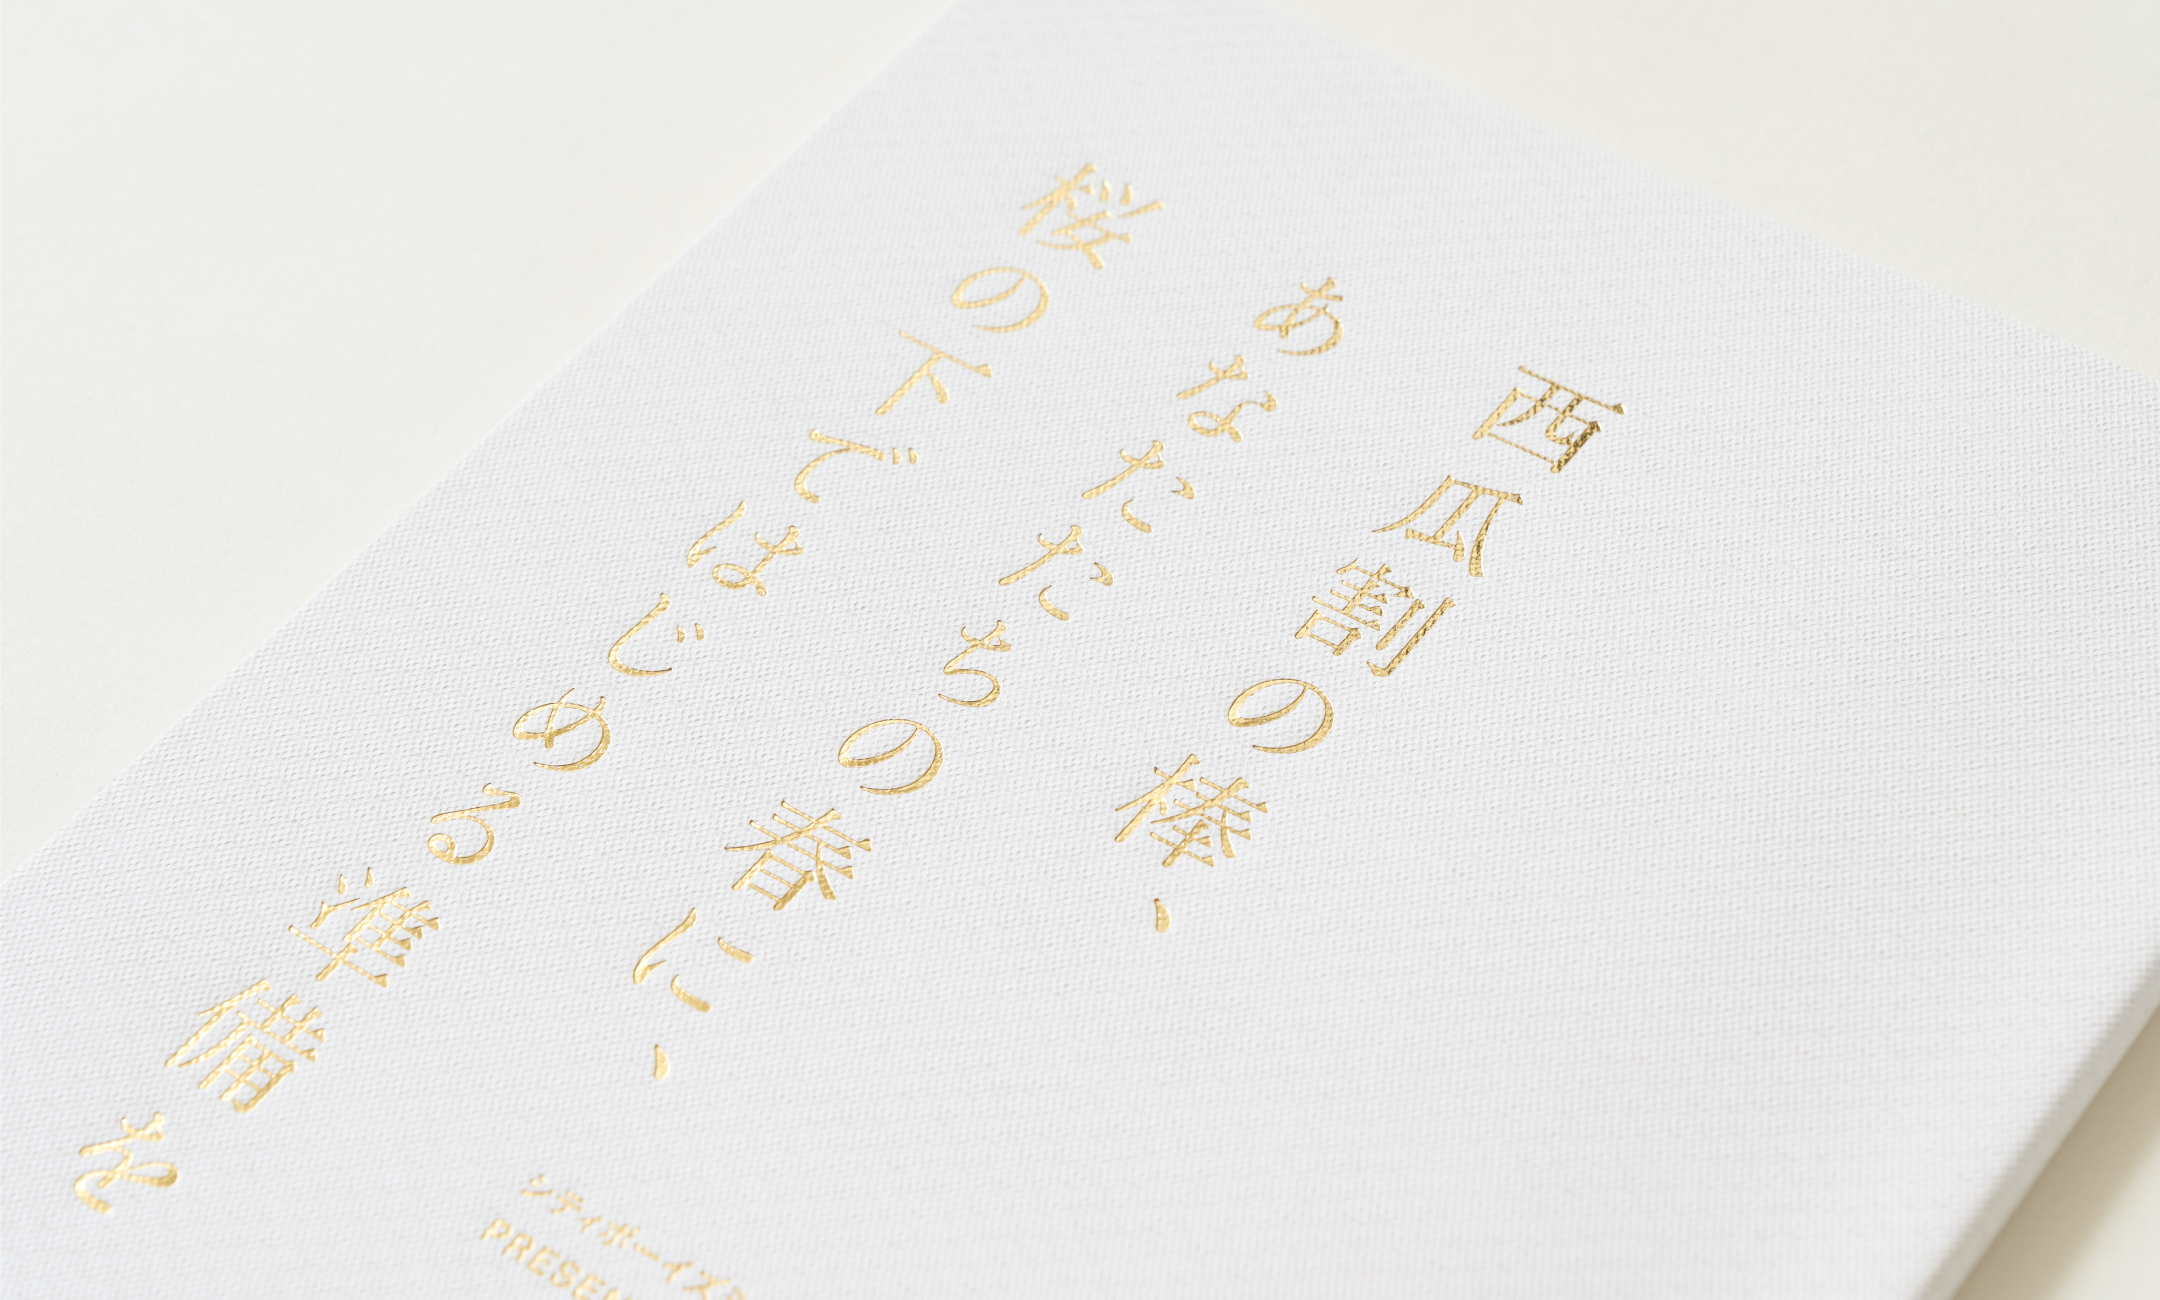 西瓜割の棒、
あなたたちの春に、
桜の下ではじめる準備を
シティボーイズ